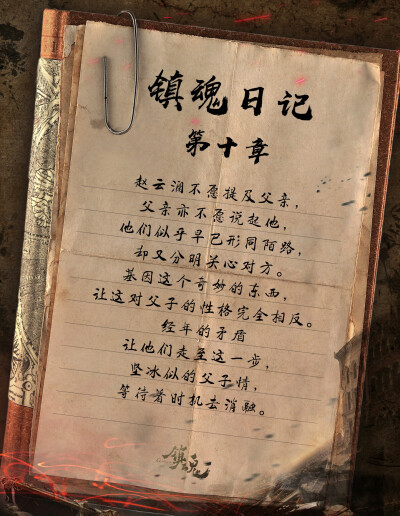 镇魂日记
第十章
赵云澜不愿提及父亲，
父亲亦不愿说起他，
他们似乎早已形同陌路，
却又分明关心对方。
基因这个奇妙的东西，
让这对父子的性格完全相反。
经年的矛盾
让他们走至这一步，
坚冰似的父子情，
等待着时机去消融。
镇魂